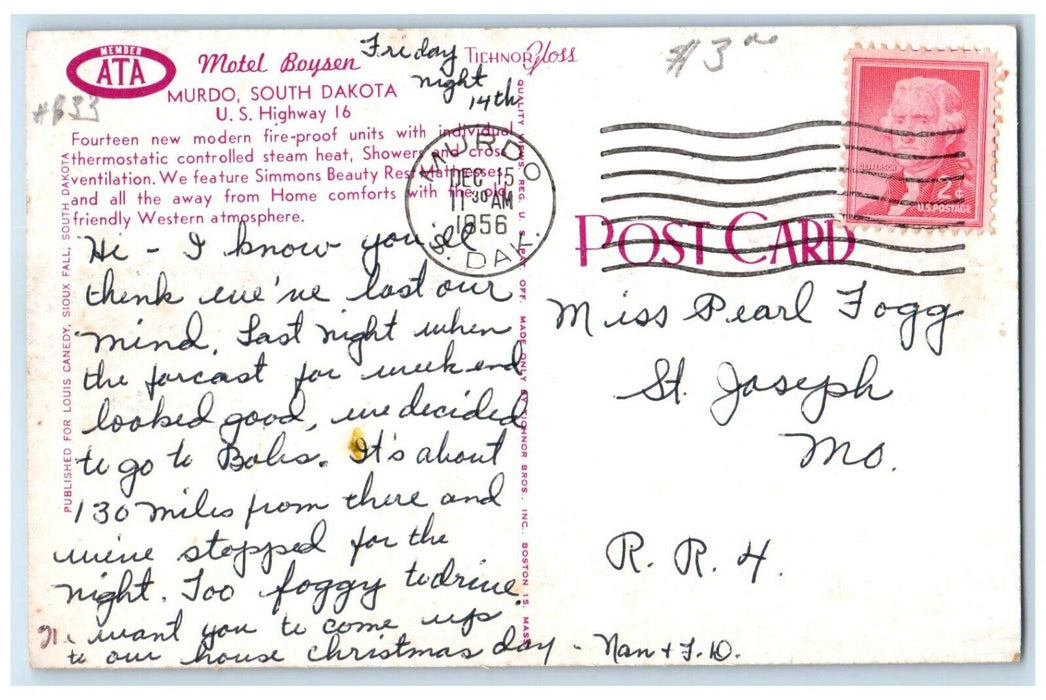 MEMBER
ATA
Motel Boysen
MURDO, SOUTH DAKOTA
U. S. Highway 16
Fourteen new modern fire-proof units with individual
thermostatic controlled steam heat, Showers and cross
ventilation. We feature Simmons Beauty Rest Mattresses,
and all the away from Home comforts with the old
friendly Western atmosphere.
Friday
night
14th
TICHNOR Gloss
#3 00
#B33
PUBLISHED FOR LOUIS CANEDY, SIOUX FALL, SOUTH DAKOTA
QUALITY VIEWS, REG. U. S. PAT. OFF. MADE ONLY BY TICHNOR BROS., INC. BOSTON 15, MASS.
MURDO
DEC 15
11 30 AM
1956
S. DAK.
JEFFERSON
2¢
U.S. POSTAGE
POST CARD
Hi - I know you'll
think we've lost our
mind. Last night when
the forcast for week end
looked good, we decided
to go to Bobs. It's about
130 miles from there and
we're stopped for the
night. Too foggy to drive.
We want you to come up
to our house christmas day - Nan + F.D.
Miss Pearl Fogg
St. Joseph
Mo.
R. R. 4.